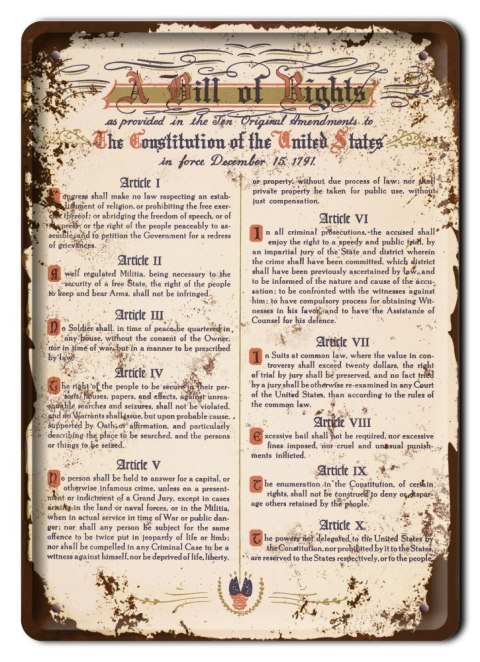 A Bill of Rights
as provided in the Ten Original Amendments to
The Constitution of the United States
in force December 15, 1791.
Article I
Congress shall make no law respecting an estab-
lishment of religion, or prohibiting the free exer-
cise thereof; or abridging the freedom of speech, or of
the press; or the right of the people peaceably to as-
semble, and to petition the Government for a redress
of grievances.
Article II
A well regulated Militia, being necessary to the
security of a free State, the right of the people
to keep and bear Arms, shall not be infringed.
Article III
No Soldier shall, in time of peace be quartered in
any house, without the consent of the Owner,
nor in time of war, but in a manner to be prescribed
by law.
Article IV
The right of the people to be secure in their per-
sons, houses, papers, and effects, against unrea-
sonable searches and seizures, shall not be violated,
and no Warrants shall issue, but upon probable cause,
supported by Oath or affirmation, and particularly
describing the place to be searched, and the persons
or things to be seized.
Article V
No person shall be held to answer for a capital, or
otherwise infamous crime, unless on a present-
ment or indictment of a Grand Jury, except in cases
arising in the land or naval forces, or in the Militia,
when in actual service in time of War or public dan-
ger; nor shall any person be subject for the same
offence to be twice put in jeopardy of life or limb;
nor shall be compelled in any Criminal Case to be a
witness against himself, nor be deprived of life, liberty,
or property, without due process of law; nor shall
private property be taken for public use, without
just compensation.
Article VI
In all criminal prosecutions, the accused shall
enjoy the right to a speedy and public trial, by
an impartial jury of the State and district wherein
the crime shall have been committed, which district
shall have been previously ascertained by law, and
to be informed of the nature and cause of the accu-
sation; to be confronted with the witnesses against
him; to have compulsory process for obtaining Wit-
nesses in his favor, and to have the Assistance of
Counsel for his defence.
Article VII
In Suits at common law, where the value in con-
troversy shall exceed twenty dollars, the right
of trial by jury shall be preserved, and no fact tried
by a jury, shall be otherwise re-examined in any Court
of the United States, than according to the rules of
the common law.
Article VIII
Excessive bail shall not be required, nor excessive
fines imposed, nor cruel and unusual punish-
ments inflicted.
Article IX
The enumeration in the Constitution, of certain
rights, shall not be construed to deny or dispar-
age others retained by the people.
Article X
The powers not delegated to the United States by
the Constitution, nor prohibited by it to the States,
are reserved to the States respectively, or to the people.